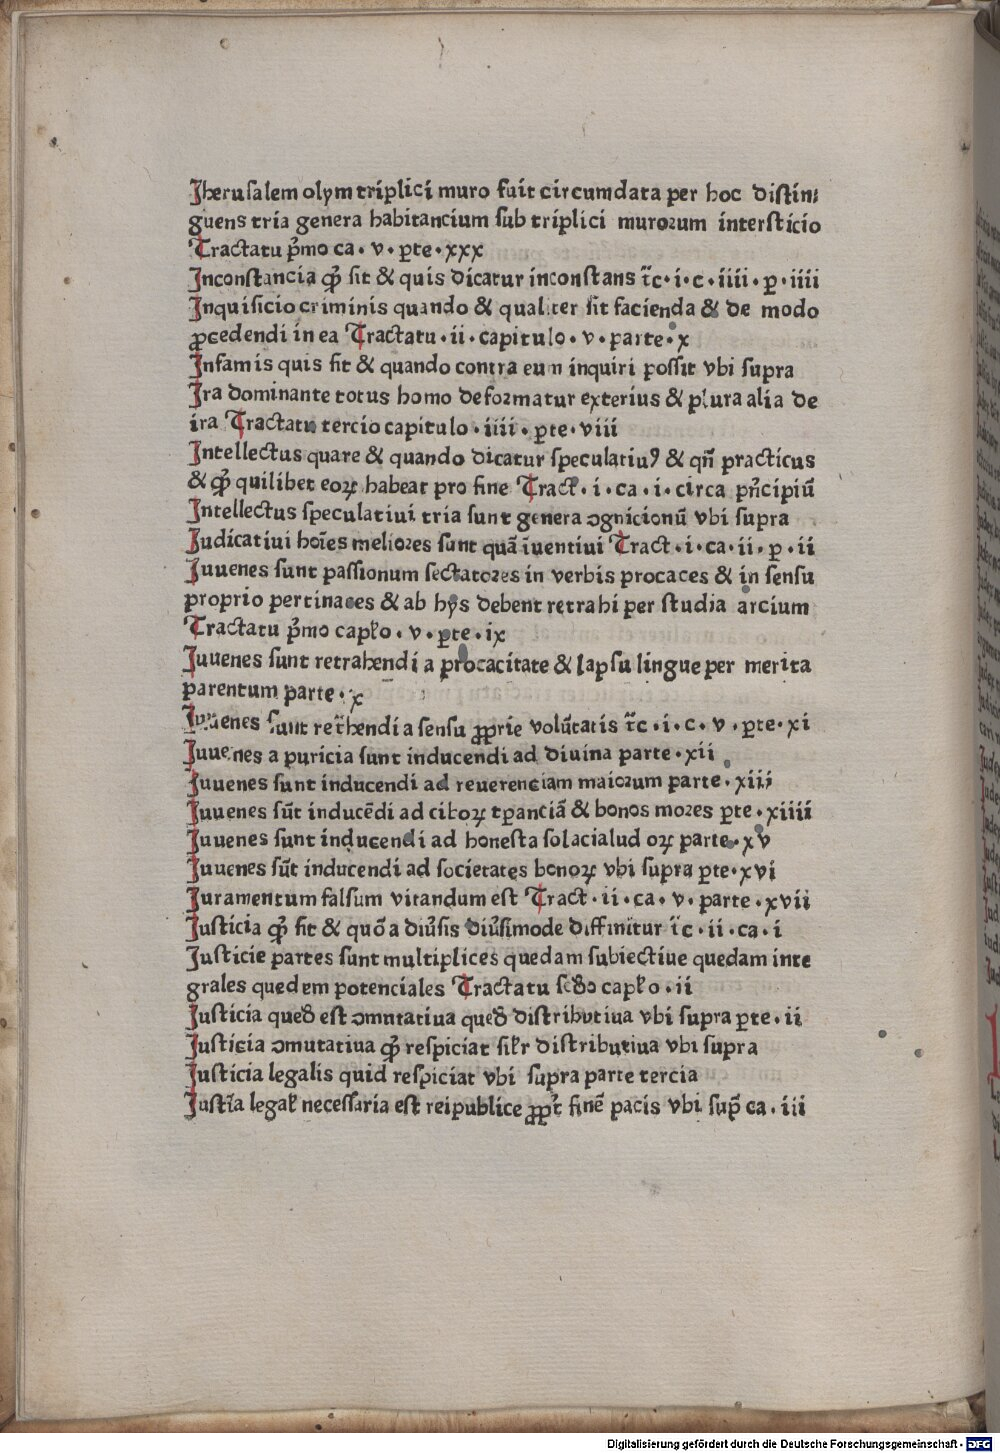 Jherusalem olym triplici muro fuit circumdata per hoc distin⸗
guens tria genera habitancium sub triplici muroꝛum intersticio
Tractatu p̃mo ca . v . ꝑte . xxx
Inconstancia qͥd sit & quis dicatur inconstans t̃c . i . c . iiii . ꝑ . iiii
Inquisicio criminis quando & qualiter sit facienda & de modo
ꝓcedendi in ea Tractatu . ii . capitulo . v . parte . x
Infamis quis sit & quando contra eum inquiri possit vbi supra
Ira dominante totus homo defoꝛmatur exterius & plura alia de
ira Tractatu tercio capitulo . iiii . ꝑte . viii
Intellectus quare & quando dicatur speculatiuꝯ & qn̄ practicus
& qͥd quilibet eoꝝ habeat pro fine Tract̃ . i . ca . i . circa pñcipiū
Intellectus speculatiui tria sunt genera ꝯgnicionū vbi supra
Judicatiui hoīes melioꝛes sunt quā īuentiui Tract . i . ca . ii . ꝑ . ii
Juuenes sunt passionum sectatoꝛes in verbis procaces & in sensu
proprio pertinaces & ab hys debent retrahi per studia arcium
Tractatu p̃mo capło . v . ꝑte . ix
Juuenes sunt retrahendi a procacitate & lapsu lingue per merita
parentum parte . x
Juuenes sunt ret̃hendi a sensu ꝓprie volũtatis t̃c . i . c . v . ꝑte . xi
Juuenes a puricia sunt inducendi ad diuina parte . xii
Juuenes sunt inducendi ad reuerenciam maioꝛum parte . xiii
Juuenes sūt inducēdi ad ciboꝝ tꝑanciā & bonos moꝛes ꝑte . xiiii
Juuenes sunt inducendi ad honesta solacialud oꝝ parte . xv
Juuenes sūt inducendi ad societates bonoꝝ vbi supra ꝑte . xvi
Juramentum falsum vitandum est Tract . ii . ca . v . parte . xvii
Justicia qͥd sit & quō a diũsis diũsimode diffinitur t̃c . ii . ca . i
Justicie partes sunt multiplices quedam subiectiue quedam inte
grales quedem potenciales Tractatu scďo capło . ii
Justicia queď est ꝯmutatiua queď distributiua vbi supra ꝑte . ii
Justicia ꝯmutatiua qͥd respiciat silꝛ distributiua vbi supra
Justicia legalis quid respiciat vbi supra parte tercia
Just̃ia legał necessaria est reipublice ꝓpt̃ finē pacis vbi sup̃ ca . iii
Digitalisierung gefördert durch die Deutsche Forschungsgemeinschaft - DFG